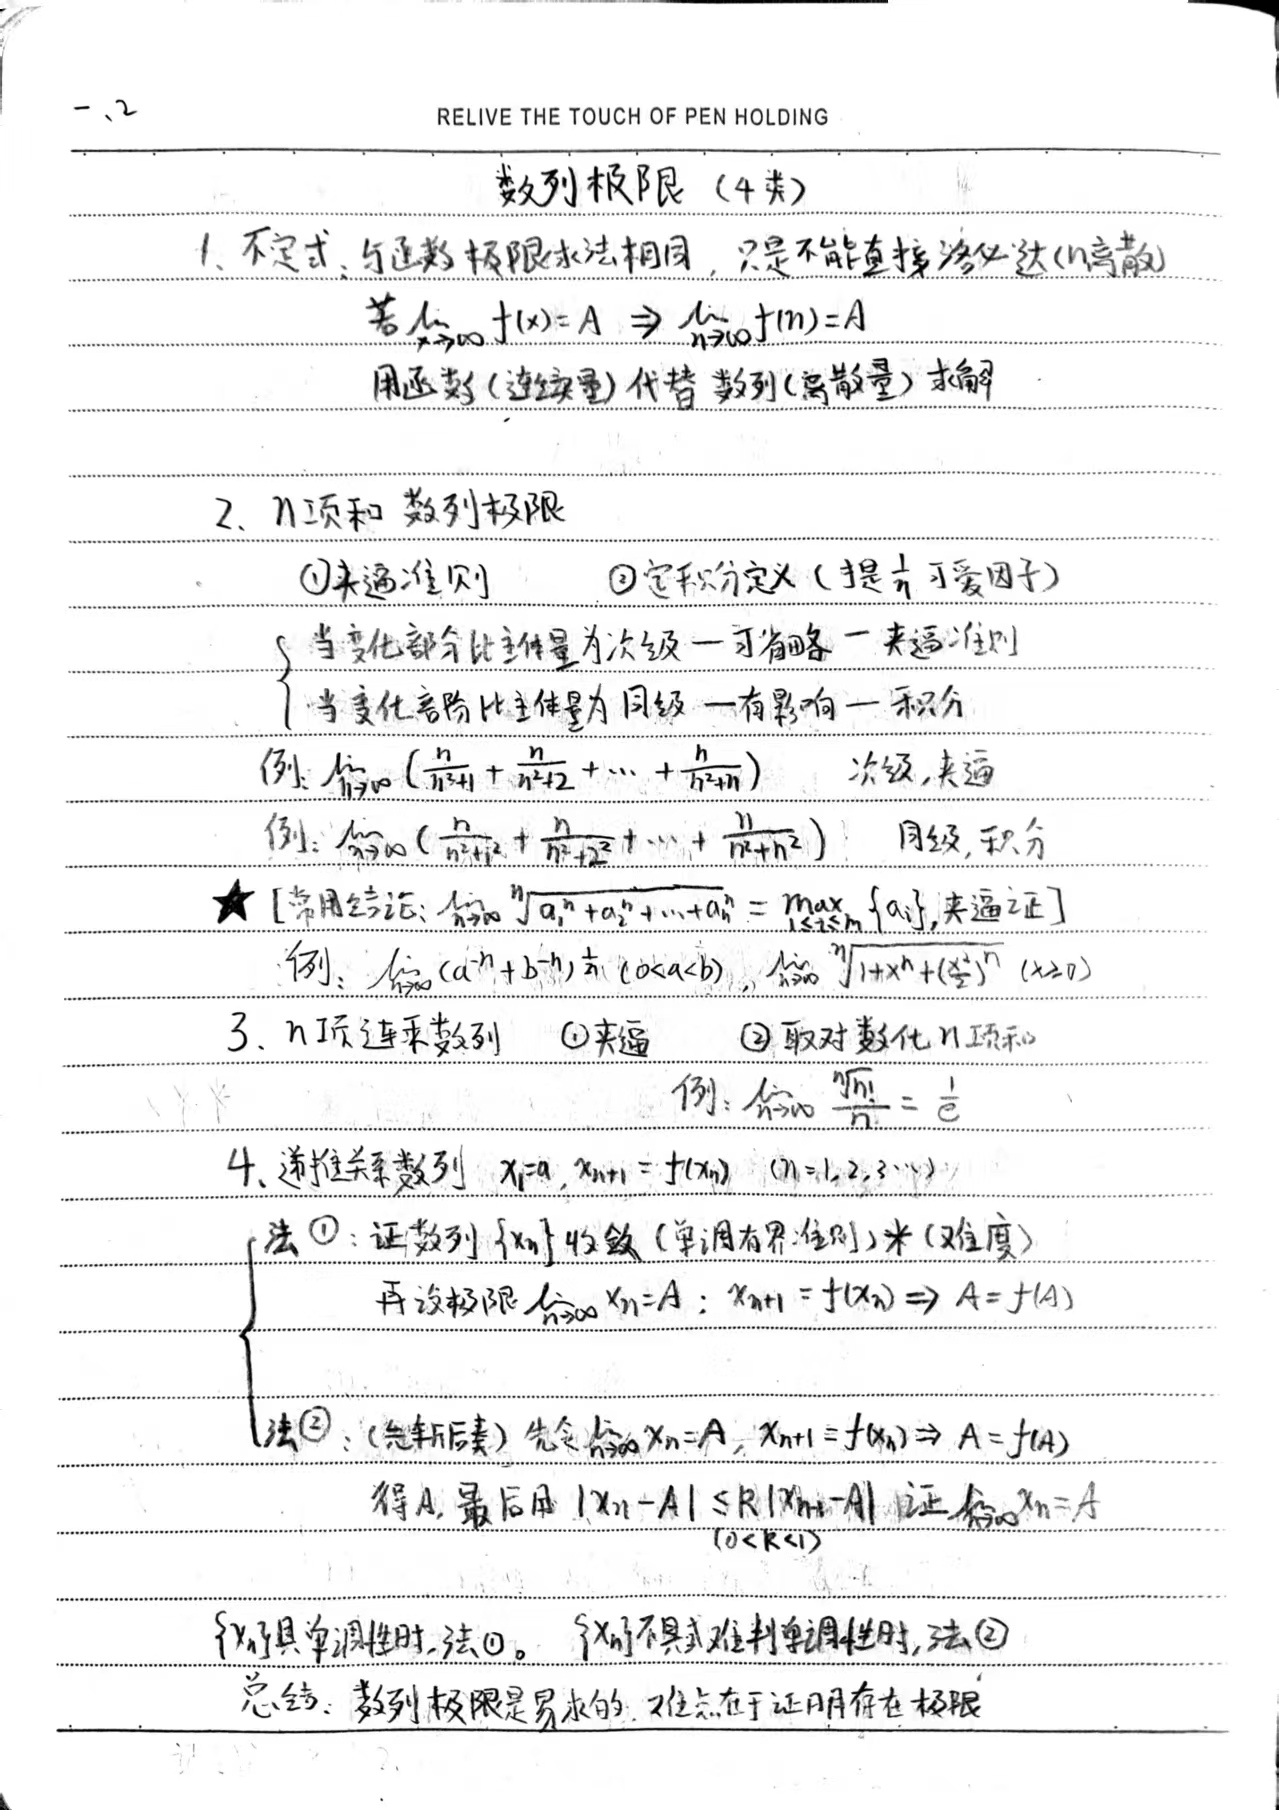 一、2
RELIVE THE TOUCH OF PEN HOLDING
数列极限（4类）
1、不定式：与函数极限求法相同，只是不能直接洛必达（n离散）
若 lim_{x→∞} f(x)=A ⇒ lim_{n→∞} f(n)=A
用函数（连续量）代替 数列（离散量）求解
2、n项和 数列极限
①夹逼准则 ②定积分定义（提 1/n 可爱因子）
当变化部分比主体量为次级 — 可省略 — 夹逼准则
当变化部分比主体量为 同级 — 有影响 — 积分
例: lim_{n→∞} (n/(n²+1) + n/(n²+2) + ⋯ + n/(n²+n)) 次级,夹逼
例: lim_{n→∞} (n/(n²+1²) + n/(n²+2²) + ⋯ + n/(n²+n²)) 同级,积分
★ [常用结论: lim_{n→∞} ⁿ√(a₁ⁿ+a₂ⁿ+⋯+aₘⁿ) = max_{1≤i≤m} {aᵢ}, 夹逼证]
例: lim_{n→∞} (a⁻ⁿ+b⁻ⁿ)^{1/n} (0<a<b), lim_{n→∞} ⁿ√(1+xⁿ+(x²/2)ⁿ) (x≥0)
3、n项连乘数列 ①夹逼 ②取对数化n项和
例: lim_{n→∞} ⁿ√(n!)/n = 1/e
4、递推关系数列 x₁=a, xₙ₊₁=f(xₙ) (n=1,2,3⋯)
法①: 证数列{xₙ}收敛（单调有界准则）*（难度）
再设极限 lim_{n→∞} xₙ=A; xₙ₊₁=f(xₙ) ⇒ A=f(A)
法②:（先斩后奏）先令 lim_{n→∞} xₙ=A, xₙ₊₁=f(xₙ) ⇒ A=f(A)
得A, 最后用 |xₙ-A| ≤ k|xₙ₋₁-A| 证 lim_{n→∞} xₙ=A
(0<k<1)
{xₙ}具单调性时,法①。 {xₙ}不具或难判单调性时,法②
总结: 数列极限是易求的. 难点在于证明存在极限